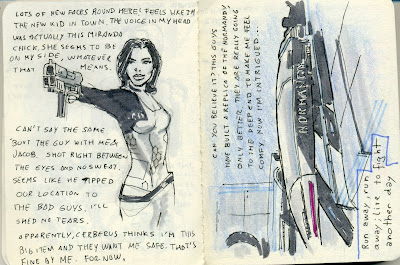 LOTS OF NEW FACES ROUND HERE! FEELS LIKE I'M
THE NEW KID IN TOWN. THE VOICE IN MY HEAD
WAS ACTUALLY THIS MIRANDA
CHICK. SHE SEEMS TO BE
ON MY SIDE, WHATEVER
THAT MEANS.
CAN'T SAY THE SAME
'BOUT THE GUY WITH ME &
JACOB. SHOT RIGHT BETWEEN
THE EYES AND NO SWEAT.
SEEMS LIKE HE TIPPED
OUR LOCATION TO
THE BAD GUYS. I'LL
SHED NO TEARS.
APPARENTLY, CERBERUS THINKS I'M THIS
BIG ITEM AND THEY WANT ME SAFE. THAT'S
FINE BY ME. FOR NOW.
CAN YOU BELIEVE IT? THIS GUYS
HAVE BUILT A REPLICA OF THE NORMANDY.
ONLY BETTER. THEY ARE REALLY GOING
TO THE DEEP END TO MAKE ME FEEL
COMFY. NOW I'M INTRIGUED...
NORMANDY
Run away, run
away; live to fight
another day